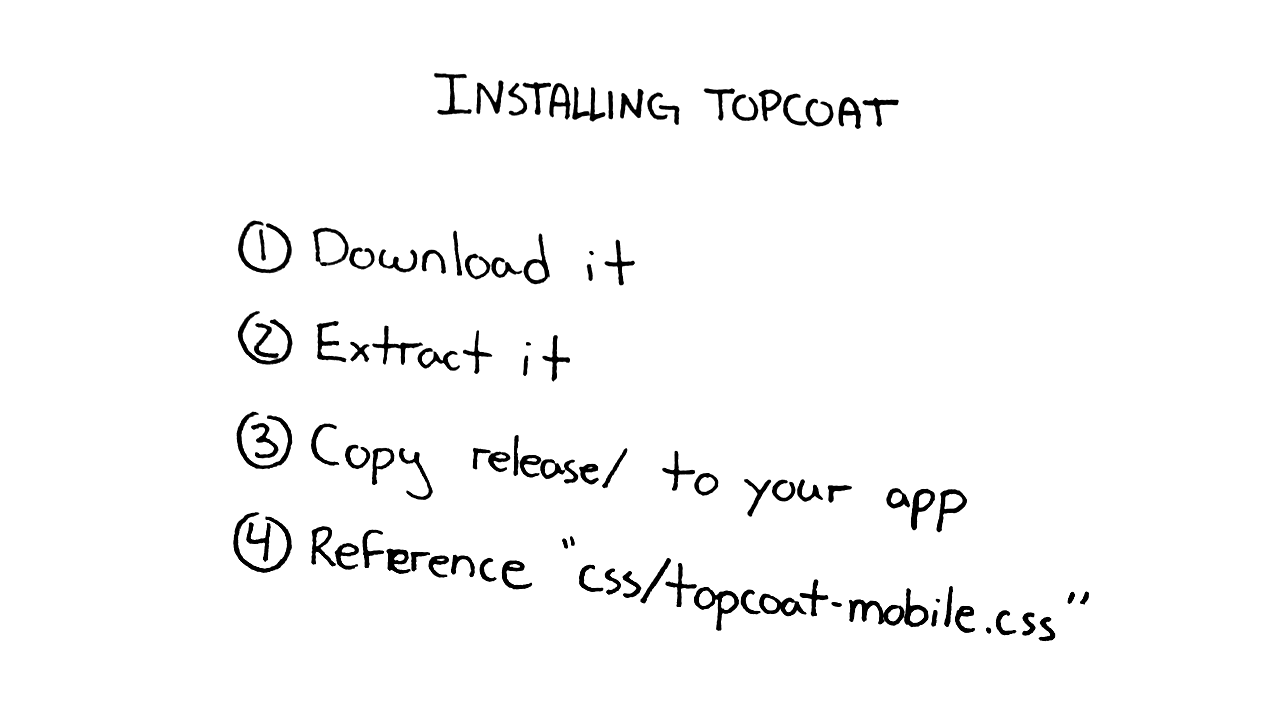 INSTALLING TOPCOAT
① Download it
② Extract it
③ Copy release/ to your app
④ Reference "css/topcoat-mobile.css"